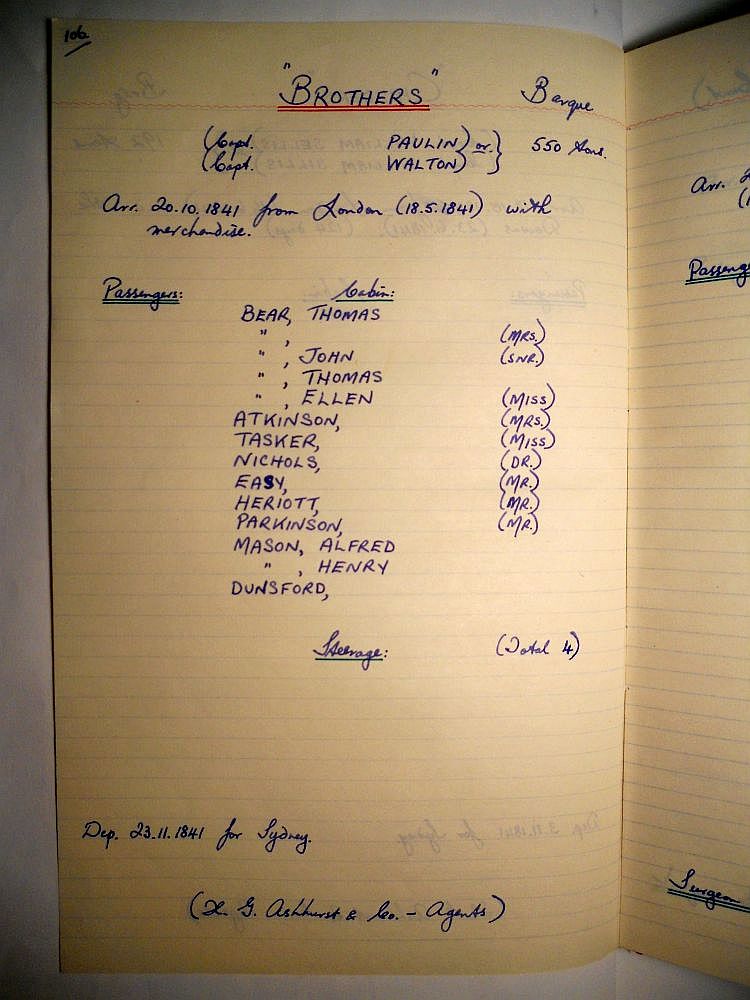 106
"BROTHERS" Barque
(Capt. PAULIN) or } 550 tons.
(Capt. WALTON)
Arr. 20.10.1841 from London (18.5.1841) with
merchandise.
Passengers: Cabin:
BEAR, THOMAS
" , (MRS.)
" , JOHN (SNR.)
" , THOMAS
" , ELLEN (MISS)
ATKINSON, (MRS.)
TASKER, (MISS)
NICHOLS, (DR.)
EASY, (MR.)
HERIOTT, (MR.)
PARKINSON, (MR.)
MASON, ALFRED
" , HENRY
DUNSFORD,
Steerage: (Total 4)
Dep. 23.11.1841 for Sydney.
G. Ashhurst & Co. - Agents)
Arr.
Passeng
Surgeon